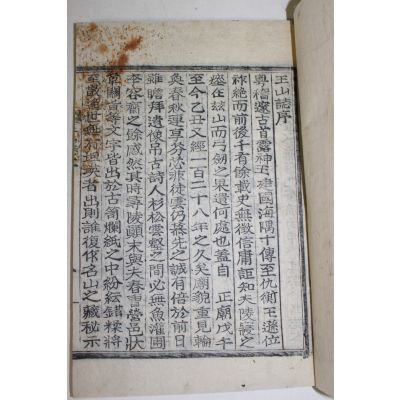 王山誌序
粤稽邃古首露神王建國海隅十傳至仇衡王遜位
祚絶而前後千有餘載史無徵信庸詎知天陵寢之
在玆山而弓劒之遺何處也蓋自 正廟戊午
至今乙丑又經一百二十八年之久矣廟貌重見輪
奐春秋運享芬苾非徒雲仍裕先之誠有倍於前日
雖瞻拜遺像吊古詩人杉松雲壑之間必無漁灌圃
李容齋之餘感然其時尋陵顚末與夫春曹營邑狀
草關音等文字皆出於古篋爛紙之中紛紜錯糅將
至散逸世無後 者出則誰復作名山之藏秘示